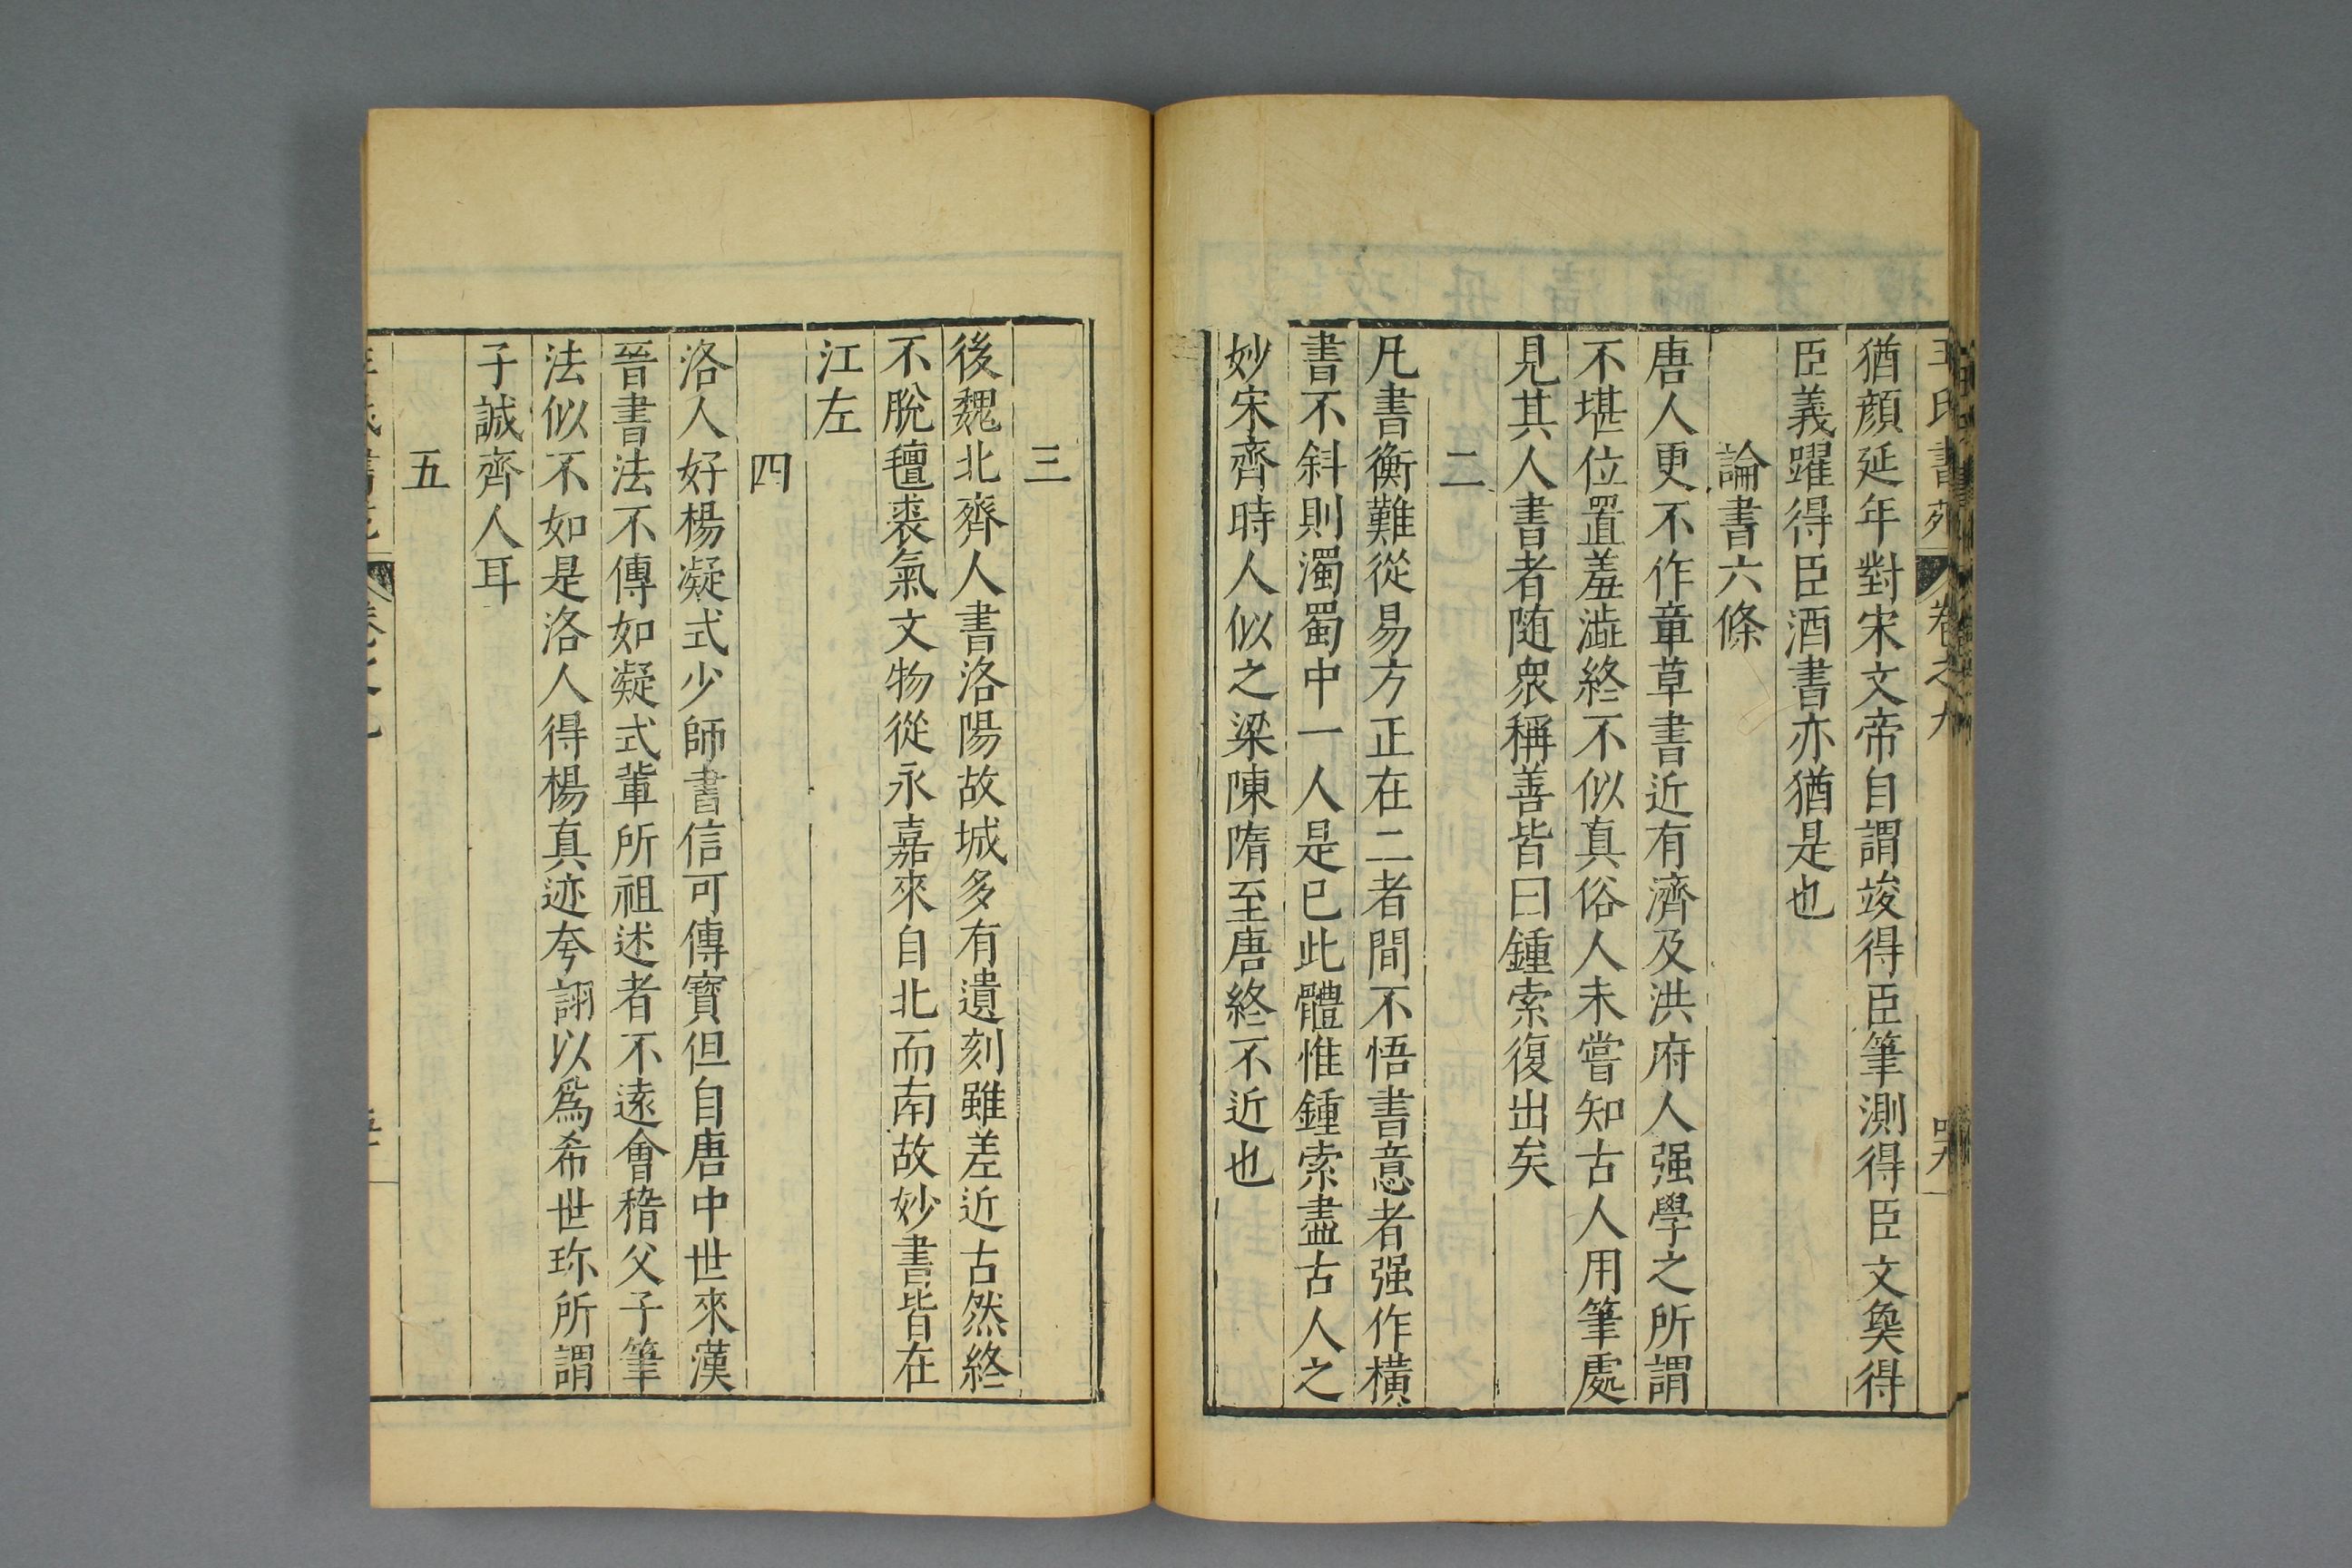 王氏書苑 卷之九
猶顔延年對宋文帝自謂竣得臣筆測得臣文㚟得
臣義躍得臣酒書亦猶是也
論書六條
唐人更不作章草書近有濟及洪府人强學之所謂
不堪位置羞澁終不似真俗人未嘗知古人用筆處
見其人書者随衆稱善皆曰鍾索復出矣
二
凡書衡難從易方正在二者間不悟書意者强作横
書不斜則濁蜀中一人是已此體惟鍾索盡古人之
妙宋齊時人似之梁陳隋至唐終不近也
三
後魏北齊人書洛陽故城多有遺刻雖差近古然終
不脫氊裘氣文物從永嘉來自北而南故妙書皆在
江左
四
洛人好楊凝式少師書信可傳寶但自唐中世來漢
晉書法不傳如凝式軰所祖述者不遠會稽父子筆
法似不如是洛人得楊真迹夸詡以爲希世珎所謂
子誠齊人耳
五